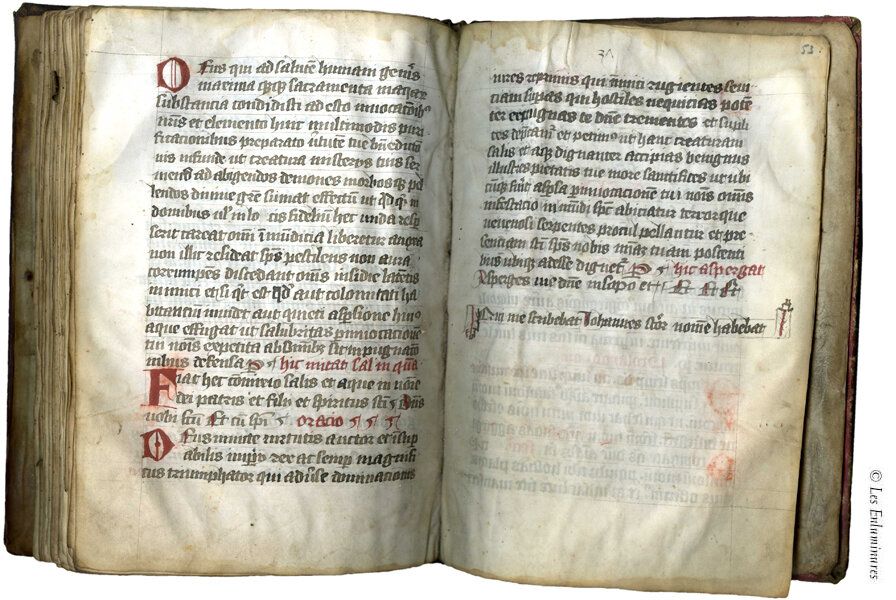 Deus qui ad salutē humani genēis
maxima quęq; sacramenta in aquaꝝ
substantia condidisti ad esto inuocatōibꝰ
nr̄is et elemento huic multimodis puri
ficationibus preparato v̄tutē tue bn̄edictōn
nis infunde ut creatura misterijs tuis ser
uiens ad abigendos demones morbosqꝫ pel
lendos diuine grē sumat effectū ut qͥdqͥd in
domibus ul in lo cis fidelium hec unda resp̄
serit careat om̄i īmūdicia liberetur a noxa
non illic resideat sp̄s pestilens non aura
corrumpēs discedant om̄s insidie latētis
inimici et si qͥd est qd̓ aut incolumitati ha
bitantiū inuidet aut quieti aspersione huiꝰ
aque effugiat ut salubritas p inuocacionē
tui nois expetita ab omībꝫ sit impugnatō
nibus defensa P hic mittat sal in aquā
Fiat hec cōmixtio salis et aque in noīe
dei patris et filii et spiritus scī Dn̄s
uobiscū Et cū spū oracio
Deus inuicte uirtutis auctor et insup
abilis imperij rex ac semp magnifi
cus triumphator qui aduerse dominationis
52
uires reprimis qui inimici rugientis seui
ciam supas qui hostiles nequicias potēn
ter expugnas te dn̄e trementes et supli
tes dep̄camur et petimꝰ ut hanc creaturam
salis et aqꝫ dignanter accipias benignus
illustres pietatis tue more sanctifices ut ubi
cūqꝫ fuerit asp̄sa p inuocacionē tui nois omīs
infestacio inmūdi sp̄c abiciatur terrorque
uenenosi serpentis procul pellantur et pre
sentiam scī sp̄s nobis miam tuam poscenti
bus ubiqꝫ adesse dignet P hic aspergat
Asperges me dn̄e insopo et
Ipsum me scribebat Iohannes scōr nomē habebat
© Les Enluminures